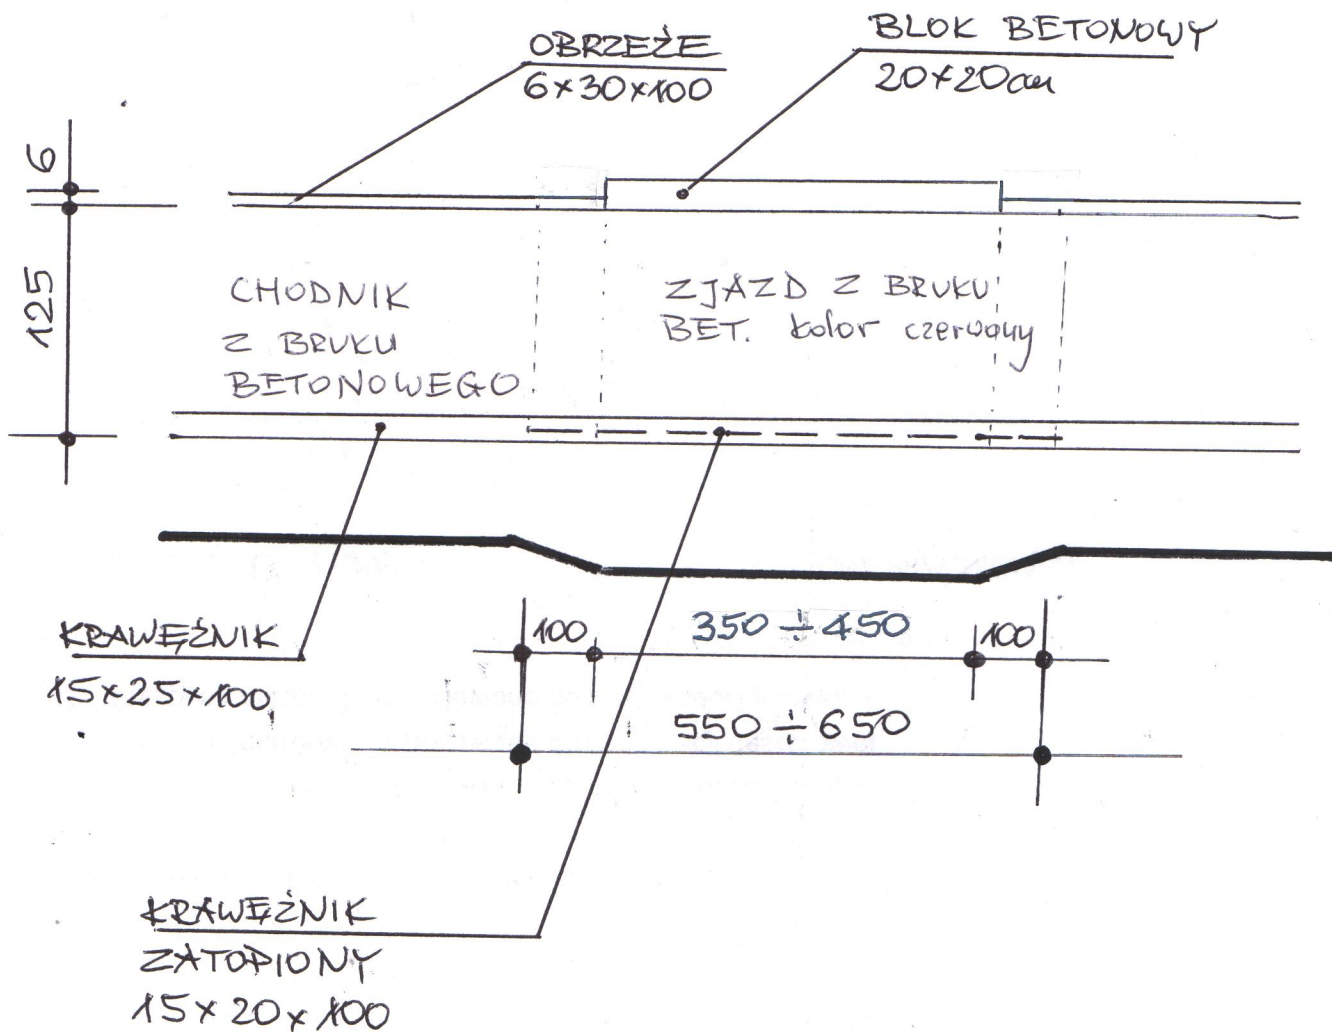 OBRZEŻE
6×30×100
BLOK BETONOWY
20×20cm
6
125
CHODNIK
Z BRUKU
BETONOWEGO
ZJAZD Z BRUKU
BET. kolor czerwony
KRAWĘŻNIK
15×25×100
100
350÷450
100
550÷650
KRAWĘŻNIK
ZATOPIONY
15×20×100